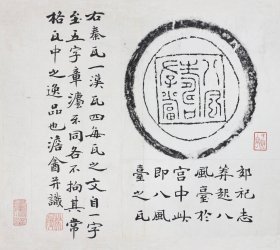 八風壽存當
郊祀志
莽起八
風臺於
宮中此
即八風
臺之瓦
右秦瓦一漢瓦四每瓦之文自一字
至五字章灋不同各不拘其常
格瓦中之逸品也澹盦并識